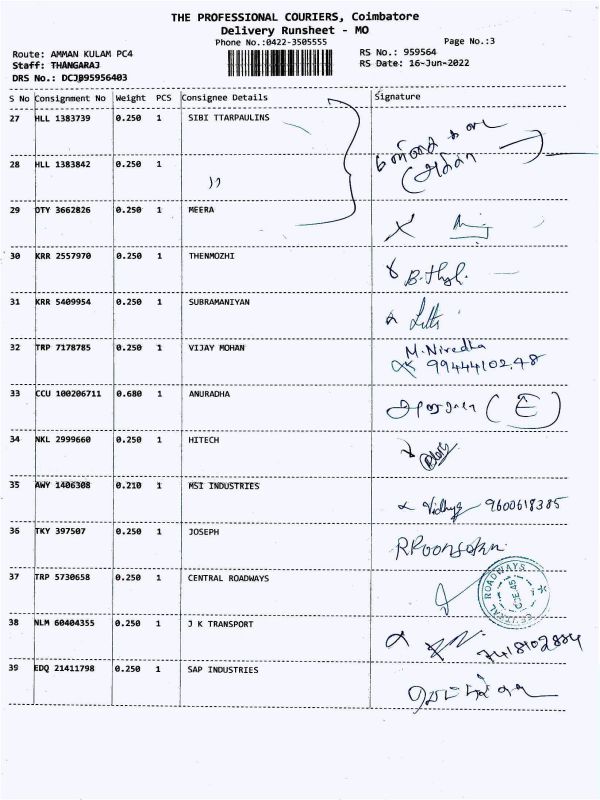 THE PROFESSIONAL COURIERS, Coimbatore
Delivery Runsheet - MO
Phone No.:0422-3505555
Page No.:3
Route: AMMAN KULAM PC4
RS No.: 959564
Staff: THANGARAJ
RS Date: 16-Jun-2022
DRS No.: DCJB95956403
S No Consignment No Weight PCS Consignee Details Signature
27 HLL 1383739 0.250 1 SIBI TTARPAULINS
28 HLL 1383842 0.250 1 "
29 OTY 3662826 0.250 1 MEERA
30 KRR 2557970 0.250 1 THENMOZHI
31 KRR 5409954 0.250 1 SUBRAMANIYAN
32 TRP 7178785 0.250 1 VIJAY MOHAN M. Nivedha
9944410298
33 CCU 100206711 0.680 1 ANURADHA
34 NKL 2999660 0.250 1 HITECH
35 AWY 1406308 0.210 1 MSI INDUSTRIES Vidhya 9600618385
36 TKY 397507 0.250 1 JOSEPH
37 TRP 5730658 0.250 1 CENTRAL ROADWAYS CENTRAL ROADWAYS
38 NLM 60404355 0.250 1 J K TRANSPORT
39 EDQ 21411798 0.250 1 SAP INDUSTRIES